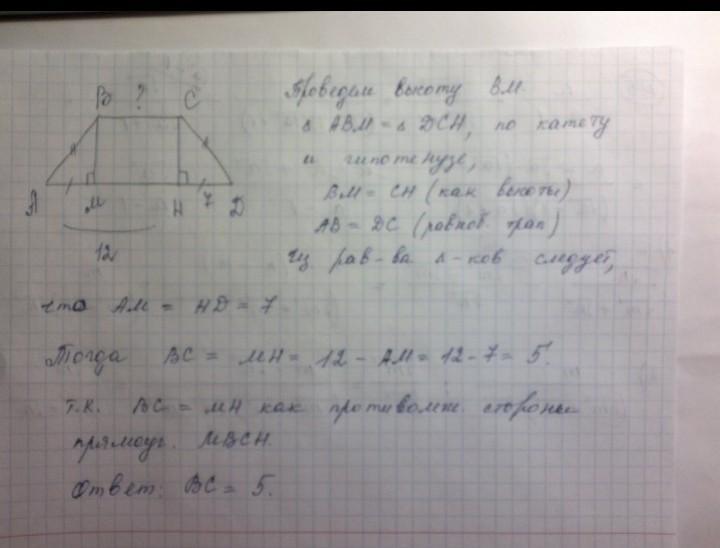 B ? C
A M H 7 D
12
Проведем высоту BM.
Δ ABM = Δ DCH, по катету
и гипотенузе,
BM = CH (как высоты)
AB = DC (равноб. трап)
Из рав-ва Δ-ков следует,
что AM = HD = 7
Тогда BC = MH = 12 - AM = 12 - 7 = 5.
т.к. BC = MH как противолеж. стороны
прямоуг. MBCH.
Ответ: BC = 5.